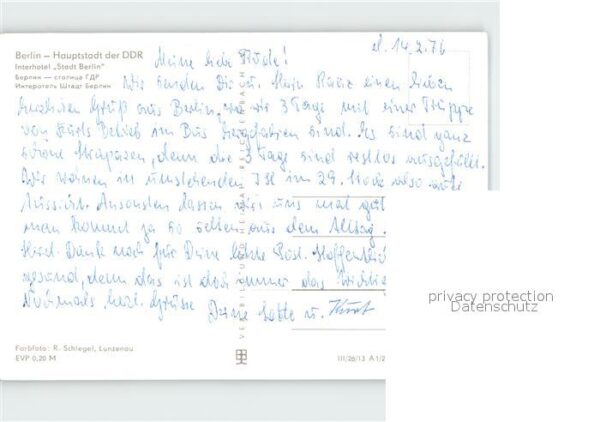 Berlin – Hauptstadt der DDR
Interhotel „Stadt Berlin"
Берлин — столица ГДР
Интеротель Штадт Берлин
d. 14.2.76
Meine liebe
Wir senden Dir u. einen lieben
Gruß aus Berlin, wo wir 3 Tage mit einer Truppe
von Betrieb im Bus hergefahren sind. Es sind ganz
schöne Strapazen, denn die 3 Tage sind restlos ausgefüllt.
Wir wohnen in umstehenden im 29. Stock also gute
Aussicht. Ansonsten lassen wir uns mal gut
man kommt ja so selten aus dem Alltag
Dank noch für Deine letzte Post. Hoffentlich
gesund, denn das ist doch immer das
Nochmals herzl. Grüsse Deine u. Kurt
VERLAG BILD UND HEIMAT REICHENBACH
privacy protection
Datenschutz
Farbfoto: R. Schlegel, Lunzenau
EVP 0,20 M
III/26/13 A 1/2